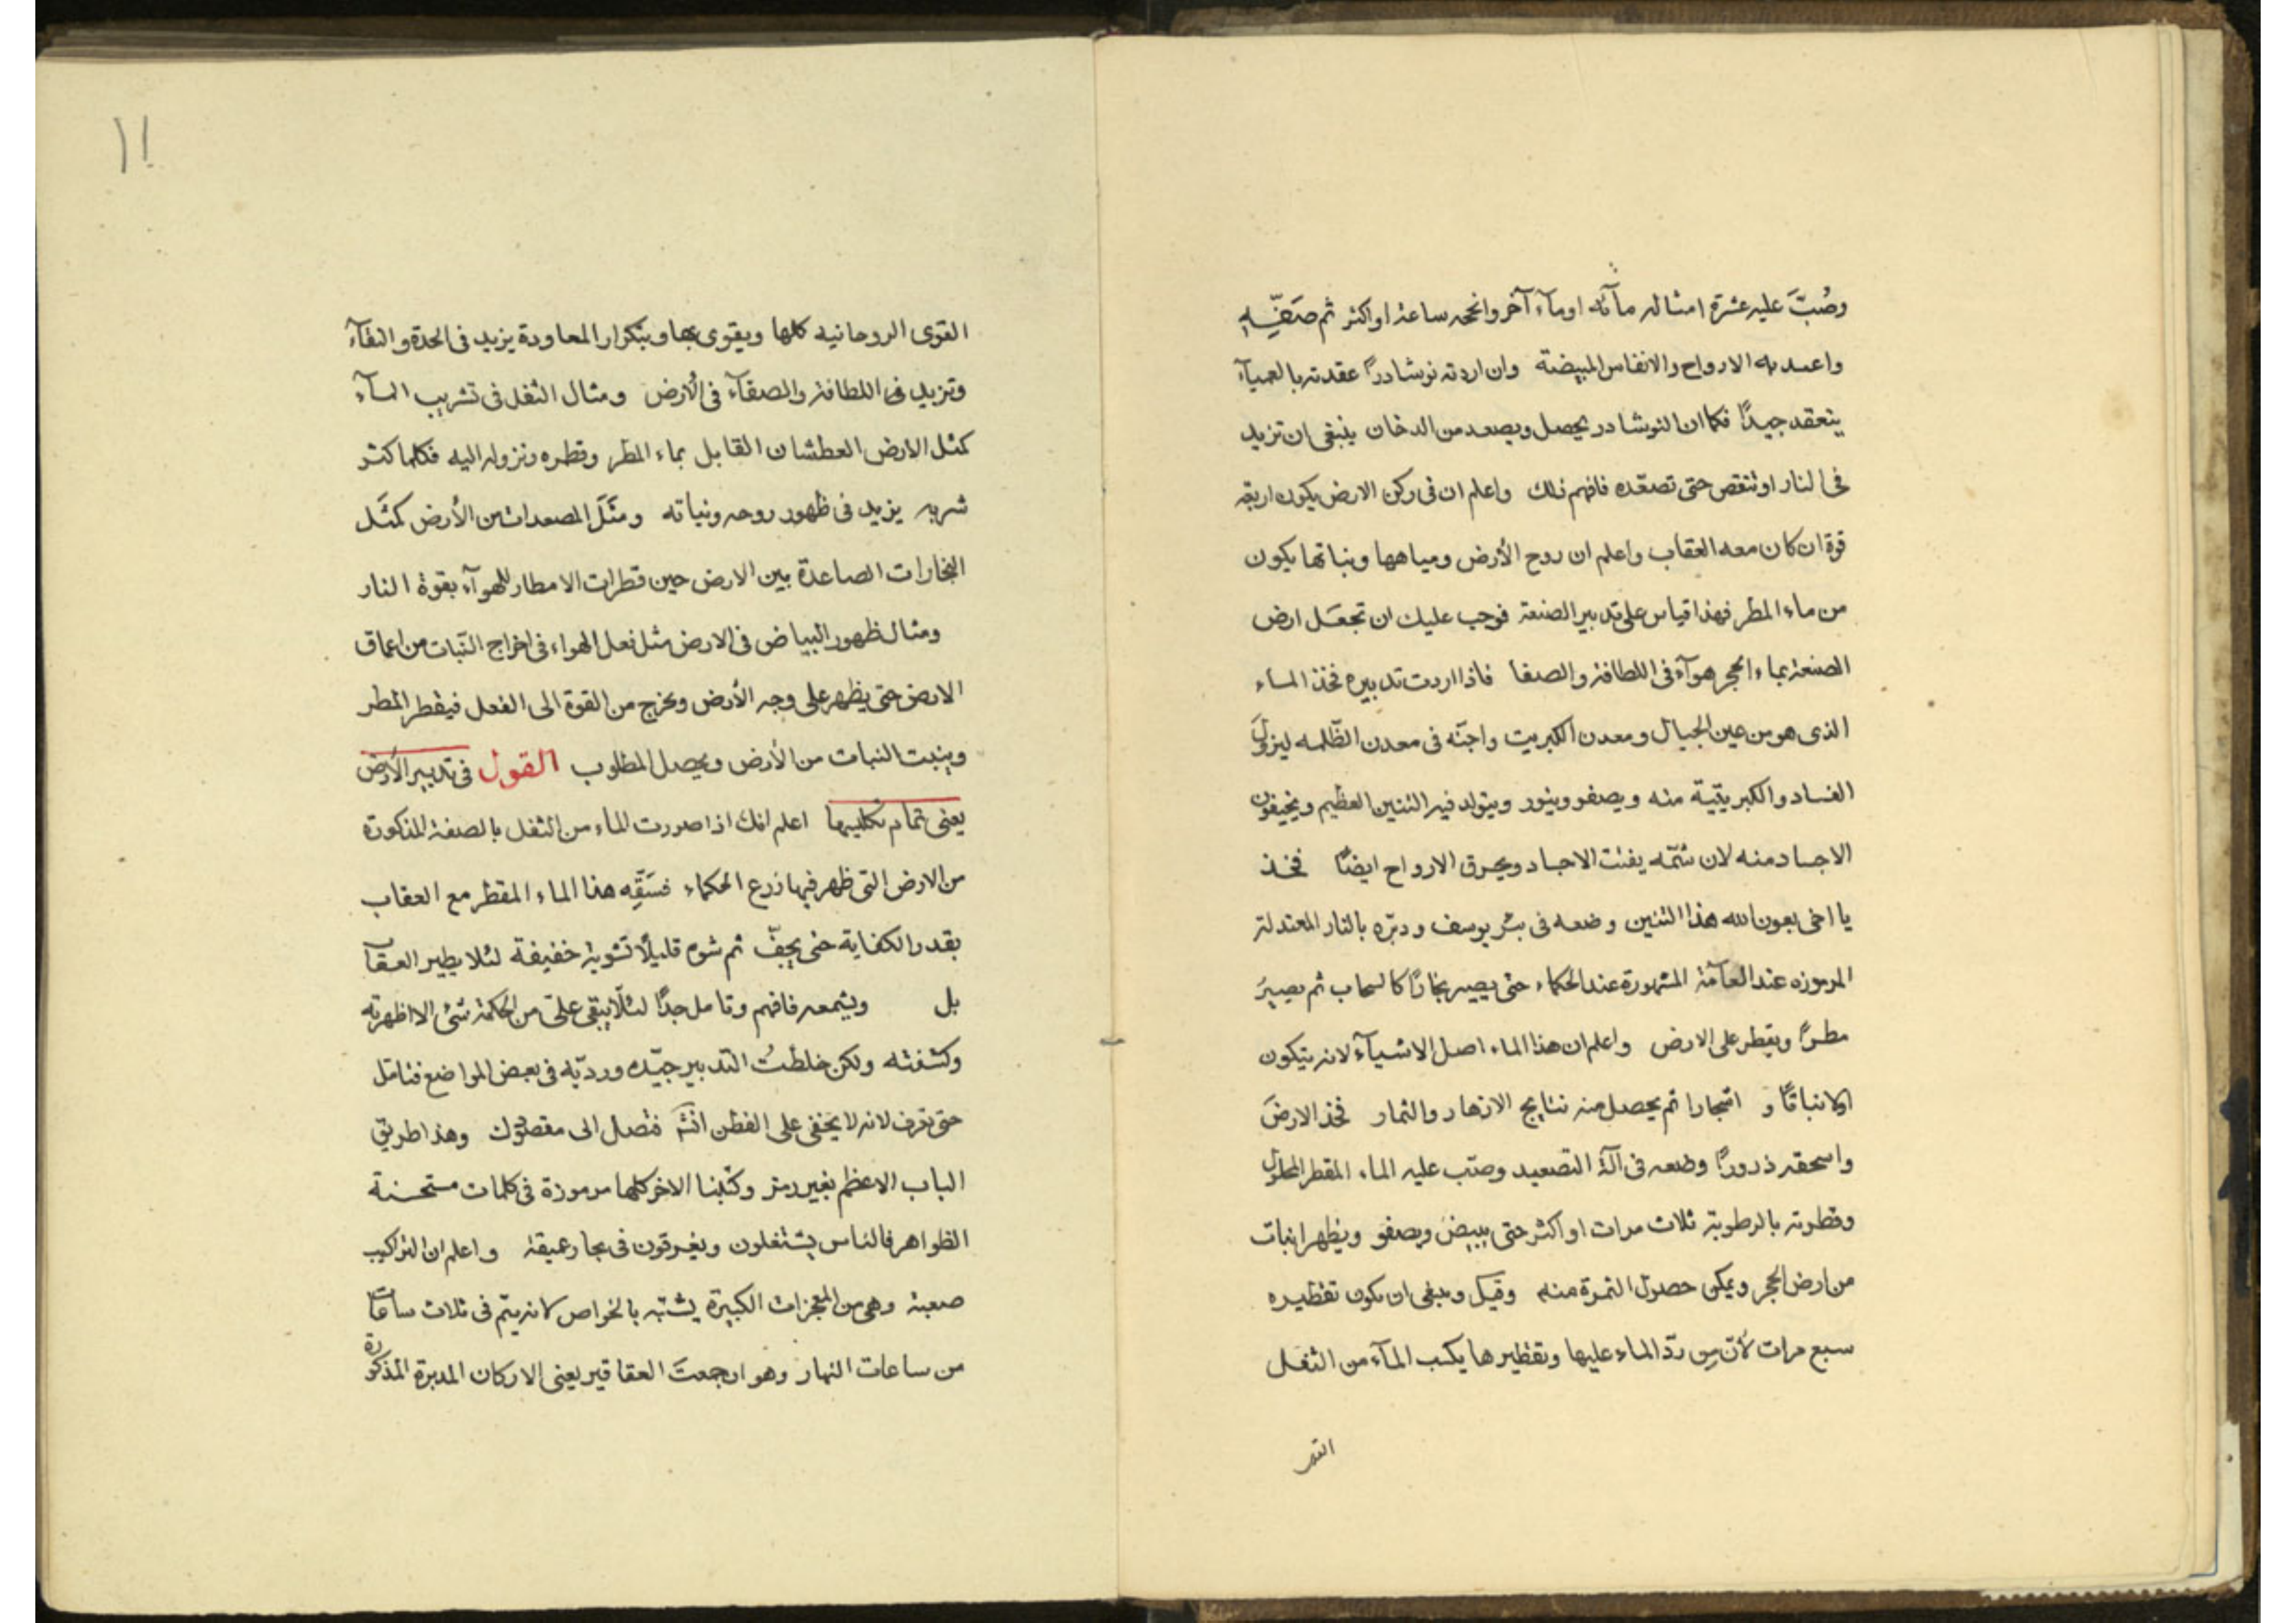 وصُبّ عليه عشرة امثاله مآئه اوماء آخر وانخمه ساعة او اكثر ثم صَفِّيه
واعمد به الارواح والانفاس المبيضة وان اردته نوشادرًا عقدته بالعمياء
ينعقد جيدًا فكما ان النوشادر يحصل ويصعد من الدخان ينبغى ان تزيد
فى النار او تنقص حتى تصعّده فافهم ذلك واعلم ان فى ركن الارض يكون اربعة
قوة ان كان معه العقاب واعلم ان روح الأرض ومياهها ونباتها يكون
من ماء المطر فهذا قياس على تدبير الصنعة فوجب عليك ان تجعَل ارض
الصنعة بماء الحجر هوآء فى اللطافة والصفا فاذا اردت تدبيره فخذ الماء
الذى هو من عين الجبال ومعدن الكبريت واجنّه فى معدن الظّلمه ليزولَ
الفساد والكبريتيّة منه ويصفو وينور ويتولد فيه التنين العظيم ويخيفون
الاجساد منه لان سُمّه يفتت الاجساد ويحرق الارواح ايضًا فخذ
يا اخى بعون الله هذا التنين وضعه فى بئر يوسف ودبّره بالنار المعتدلة
المرموزه عند العآمة المشهورة عند الحكماء حتى يصير بخارًا كالسحاب ثم يصيرَ
مطرًا ويقطر على الارض واعلم ان هذا الماء اصل الاشيآء لانه يتكون
اولا نباتًا و اشجارا ثم يحصل منه نتايج الازهار والثمار فخذ الارضَ
واسحقه ذرورًا وضعه فى آلة التصعيد وصُب عليه الماء المقطر المحلول
وقطرته بالرطوبة ثلاث مرات او اكثر حتى يبيضّ ويصفو ويظهر انبات
من ارض الحجر ويمكن حصول الثمرة منه وقيل وينبغى ان يكون تقطيره
سبع مرات لأنّ من ردّ الماء عليها وتقطيرها يكسب المآء من الثفل
القو
١١
القوى الروحانيه كلها ويقوى بها وبتكرار المعاودة يزيد فى الحدة والنقآء
وتزيد فى اللطافة والصفآء فى الأرض ومثال الثفل فى تشريب المآء
كمثل الارض العطشان القابل بماء المطر وقطره ونزوله اليه فكلما كثر
شربه يزيد فى ظهور روحه ونباته ومثَل المصعدات من الأرض كمثَل
البخارات الصاعدة بين الارض حين قطرات الامطار للهوآء بقوة النار
ومثال ظهور البياض فى الارض مثل فعل الهواء فى اخراج النّبات من اعماق
الارض حتى يظهر على وجه الأرض ويخرج من القوة الى الفعل فيقطر المطر
وينبت النبات من الأرض ويحصل المطلوب القول فى تدبير الأرض
يعنى تمام تكليسها اعلم انك اذا صورت الماء من الثفل بالصفة المذكورة
من الارض التى ظهر فيها زرع الحكماء فسَقِّه هذا الماء المقطر مع العقاب
بقدر الكفاية حتى يجفّ ثم شوه قليلًا تشوية خفيفة لئلا يطير العقآب
بل ويشمعه فافهم وتامل جدًا لئلا يبقى علىّ من الحكمة شئ الا اظهرته
وكشفته ولكن خلطتُ التدبير جيّده ورديّه فى بعض المواضع فتامّل
حتى تعرف لانه لا يخفى على الفطن فتصل الى مقصودك وهذا طريق
الباب الاعظم بغير رمز وكتبنا الاخر كلها مرموزة فى كلمات مستحسنة
الظواهر فالناس يشتغلون ويغرقون فى بحار عميقة واعلم ان التراكيب
صعبة وهى من المعجزات الكبيرة يشتبه بالخواص لانه يتم فى ثلاث ساعات
من ساعات النهار وهو ان جمعتَ العقاقير يعنى الاركان المدبرة المذكورة